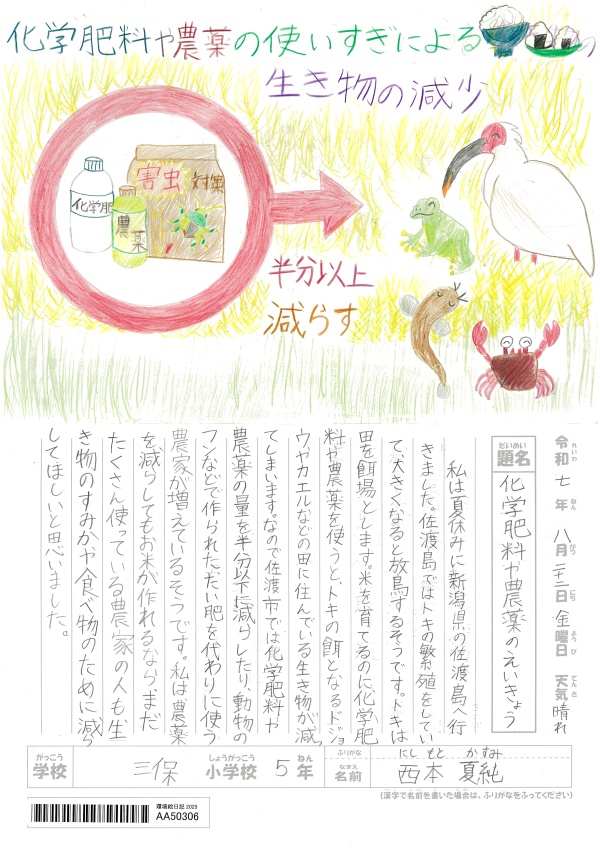 化学肥料や農薬の使いすぎによる
の
生き物の減少
化学肥
農薬
害虫対策
半分以上
減らす
れいわ ねん がつ にち ようび てんき
令和七年八月二十二日金曜日 天気 晴れ
だいめい
題名 化学肥料や農薬のえいきょう
私は夏休みに新潟県の佐渡島へ行
きました。佐渡島ではトキの繁殖をしてい
て、大きくなると放鳥するそうです。トキは
田を餌場とします。米を育てるのに化学肥
料や農薬を使うと、トキの餌となるドジョ
ウやカエルなどの田に住んでいる生き物が減っ
てしまいます。なので佐渡市では化学肥料や
農薬の量を半分以下に減らしたり、動物の
フンなどで作られたたい肥を代わりに使う
農家が増えているそうです。私は農薬
を減らしてもお米が作れるなら、まだ
たくさん使っている農家の人も生
き物のすみかや食べ物のために減ら
してほしいと思いました。
がっこう しょうがっこう ねん
学校 三保 小学校 5年
ふりがな にしもと かすみ
なまえ
名前 西本 夏純
(漢字で名前を書いた場合は、ふりがなをふってください)
環境絵日記 2025
AA50306